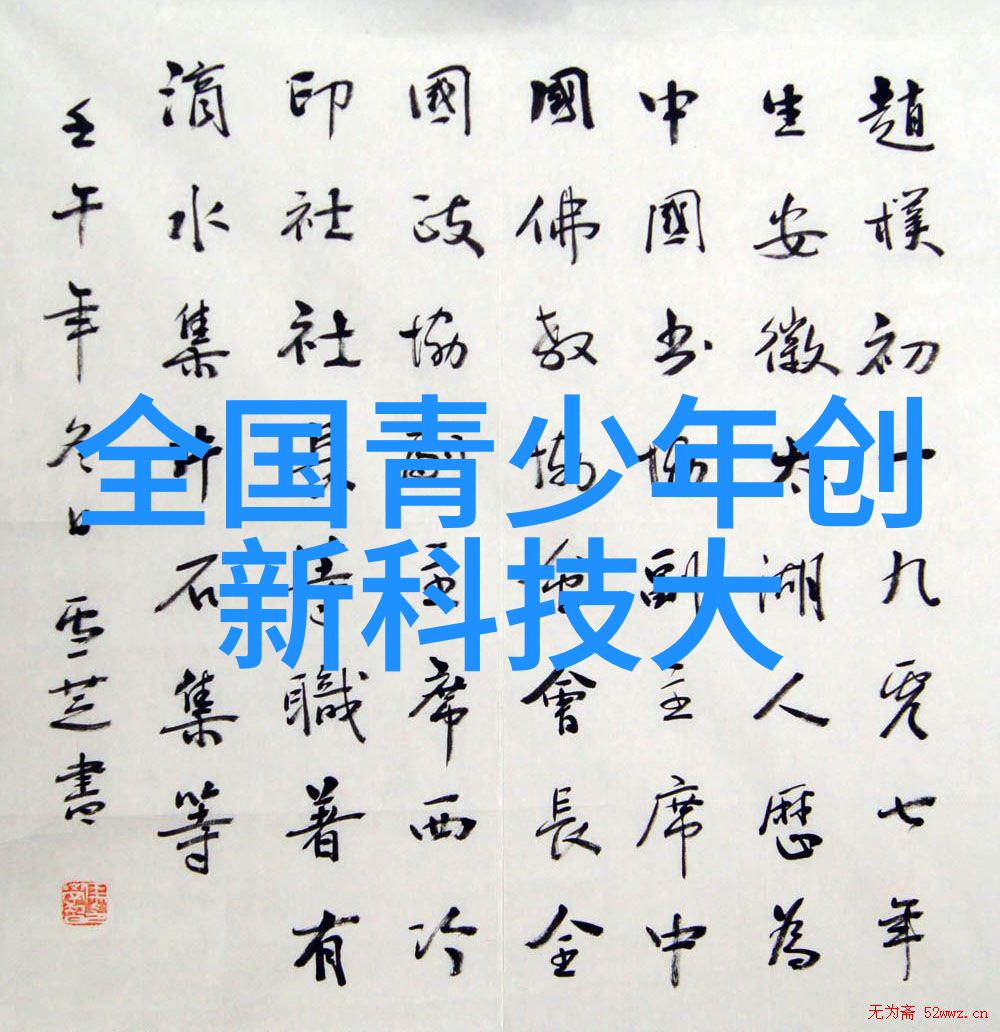 趙樸初一九零七年
生安徽太湖人歷為
中國書協副主席中
國佛教協會會長全
國政協副主席西冷
印社社長等職著有
滴水集片石集等
壬午年冬日雪芝書
全国青少年创
新科技大
无为斋 52wwz.cn